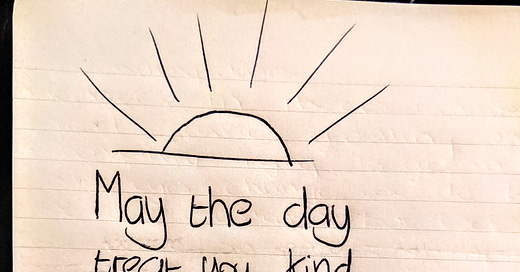 May the day
treat you kind